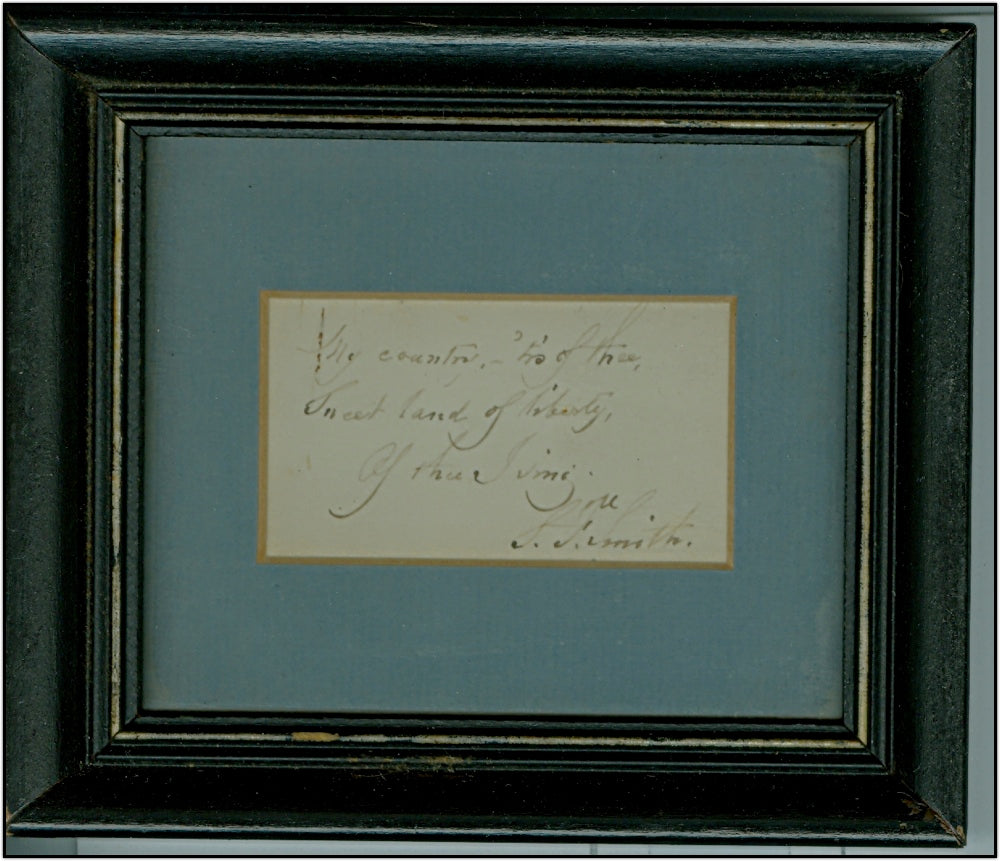 My country, – 'tis of thee,
Sweet land of liberty,
Of thee I sing.
S. F. Smith.